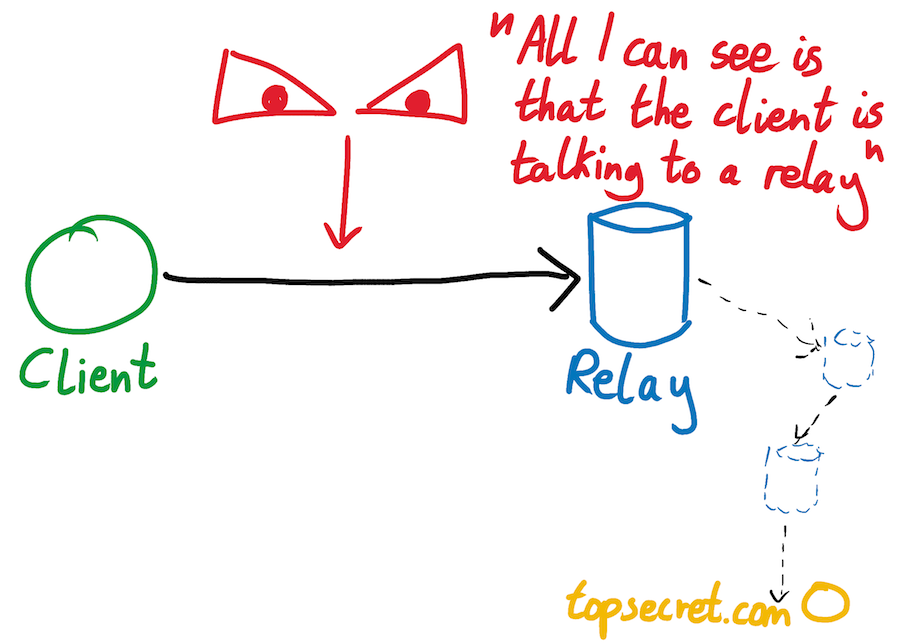 "All I can see is
that the client is
talking to a relay"
Client
Relay
topsecret.com